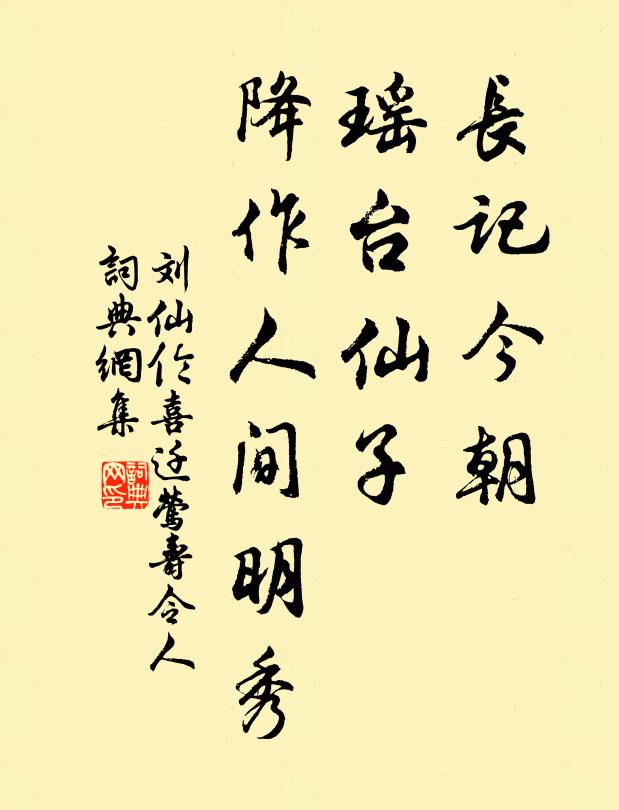 長记今朝
瑶台仙子
降作人间明秀
刘仙伦喜迁莺寿令人
詞典網集
詞典网印